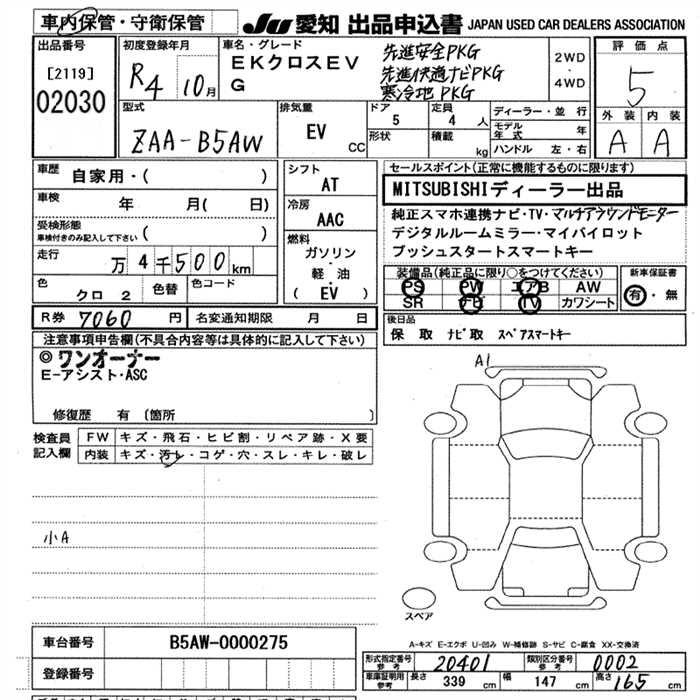 車内保管・守衛保管
JU 愛知 出品申込書 JAPAN USED CAR DEALERS ASSOCIATION
出品番号
[2119]
02030
初度登録年月
R4 10月
車名・グレード
EKクロスEV
G
先進安全PKG
先進快適ナビPKG
寒冷地PKG
2WD
・
4WD
評価点
5
外装 内装
A A
型式
ZAA-B5AW
排気量
EV
CC
ドア
5
定員
4 人
形状
積載
kg
ディーラー・並行
モデル年式 年
ハンドル 左・右
車歴
自家用・( )
車検
年 月( 日)
受検形態
車検付きのみ記入して下さい ( )
走行
万 4千500km
色
クロ 2
色替
色コード
シフト
AT
冷房
AAC
燃料
ガソリン
・
軽・油
( EV )
セールスポイント(正常に機能するものに限ります)
MITSUBISHIディーラー出品
純正スマホ連携ナビ・TV・マルチアラウンドモニター
デジタルルームミラー・マイパイロット
プッシュスタートスマートキー
装備品(純正品に限り○をつけてください)
PS PW エアB AW
SR ナビ TV カワシート
新車保証書
有・無
R券 7060 円
名変通知期限 月 日
後日品
保 取 ナビ取 スペアスマートキー
注意事項申告欄(不具合内容等は具体的に記入して下さい)
◎ワンオーナー
E-アシスト・ASC
修復歴 有 〔箇所 〕
検査員
記入欄
FW キズ・飛石・ヒビ割・リペア跡・X要
内装 キズ・汚レ・コゲ・穴・スレ・キレ・破レ
A1
小A
スペア
車台番号 B5AW-0000275
登録番号
A-キズ E-エクボ U-凹み W-補修跡 S-サビ C-腐食 XX-交換済
形式指定番号
参考
20401
類別区分番号
参考
0002
車庫証明用
参考
長さ 339 cm
幅 147 cm
高さ 165 cm